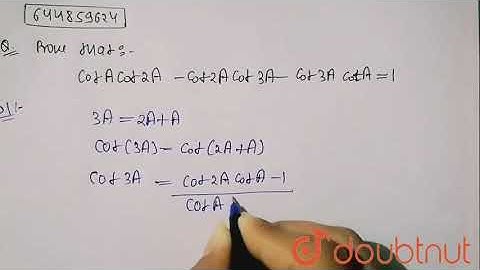 644859624
Q. Prove that:-
Cot A Cot 2A - Cot 2A Cot 3A - Cot 3A Cot A = 1
Sol:-
3A = 2A + A
Cot (3A) - Cot (2A + A)
Cot 3A = Cot 2A Cot A - 1
Cot A
doubtnut